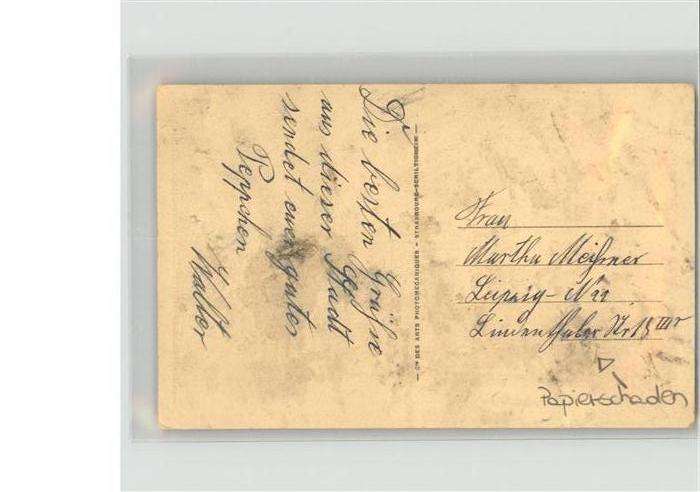 Die besten Grüße
aus dieser Stadt
sendet euer guter
Peppchen
Walter
— Cie DES ARTS PHOTOMECANIQUES - STRASBOURG-SCHILTIGHEIM —
Frau
Martha Meißner
Leipzig - N22
Lindenthaler Str 13 IIIr
Papierschaden